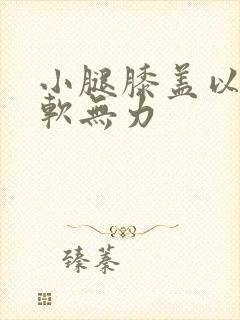 小腿膝盖以
軟無力
臻蓁